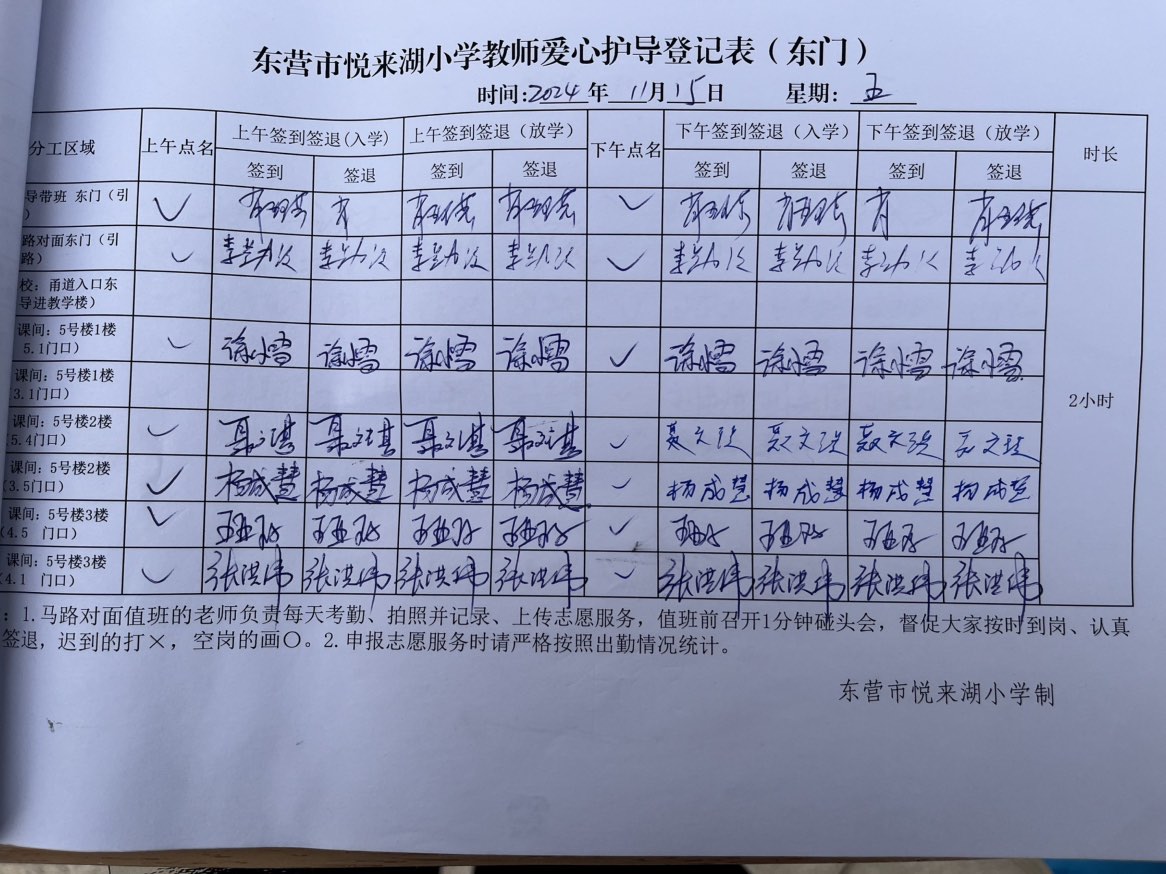 东营市悦来湖小学教师爱心护导登记表（东门）
时间:2024年 11月15日 星期: 五
分工区域 上午点名 上午签到签退(入学) 上午签到签退（放学） 下午点名 下午签到签退（入学） 下午签到签退（放学） 时长
签到 签退 签到 签退 签到 签退 签到 签退
导带班 东门（引
）
✓ ✓
路对面东门（引
路）
✓ ✓
校：甬道入口东
导进教学楼）
课间：5号楼1楼
5.1门口）
✓ 徐小雪 徐小雪 徐小雪 徐小雪 ✓ 徐小雪 徐小雪 徐小雪 徐小雪
课间：5号楼1楼
3.1门口）
2小时
课间：5号楼2楼
5.4门口）
✓ 聂文琪 聂文琪 聂文琪 聂文琪 ✓ 聂文琪 聂文琪 聂文琪 聂文琪
课间：5号楼2楼
(3.5门口）
✓ 杨成慧 杨成慧 杨成慧 杨成慧 ✓ 杨成慧 杨成慧 杨成慧 杨成慧
课间：5号楼3楼
(4.5 门口）
✓ ✓
课间：5号楼3楼
(4.1 门口）
✓ 张洪伟 张洪伟 张洪伟 张洪伟 ✓ 张洪伟 张洪伟 张洪伟 张洪伟
：1.马路对面值班的老师负责每天考勤、拍照并记录、上传志愿服务，值班前召开1分钟碰头会，督促大家按时到岗、认真
签退，迟到的打×，空岗的画〇。2.申报志愿服务时请严格按照出勤情况统计。
东营市悦来湖小学制